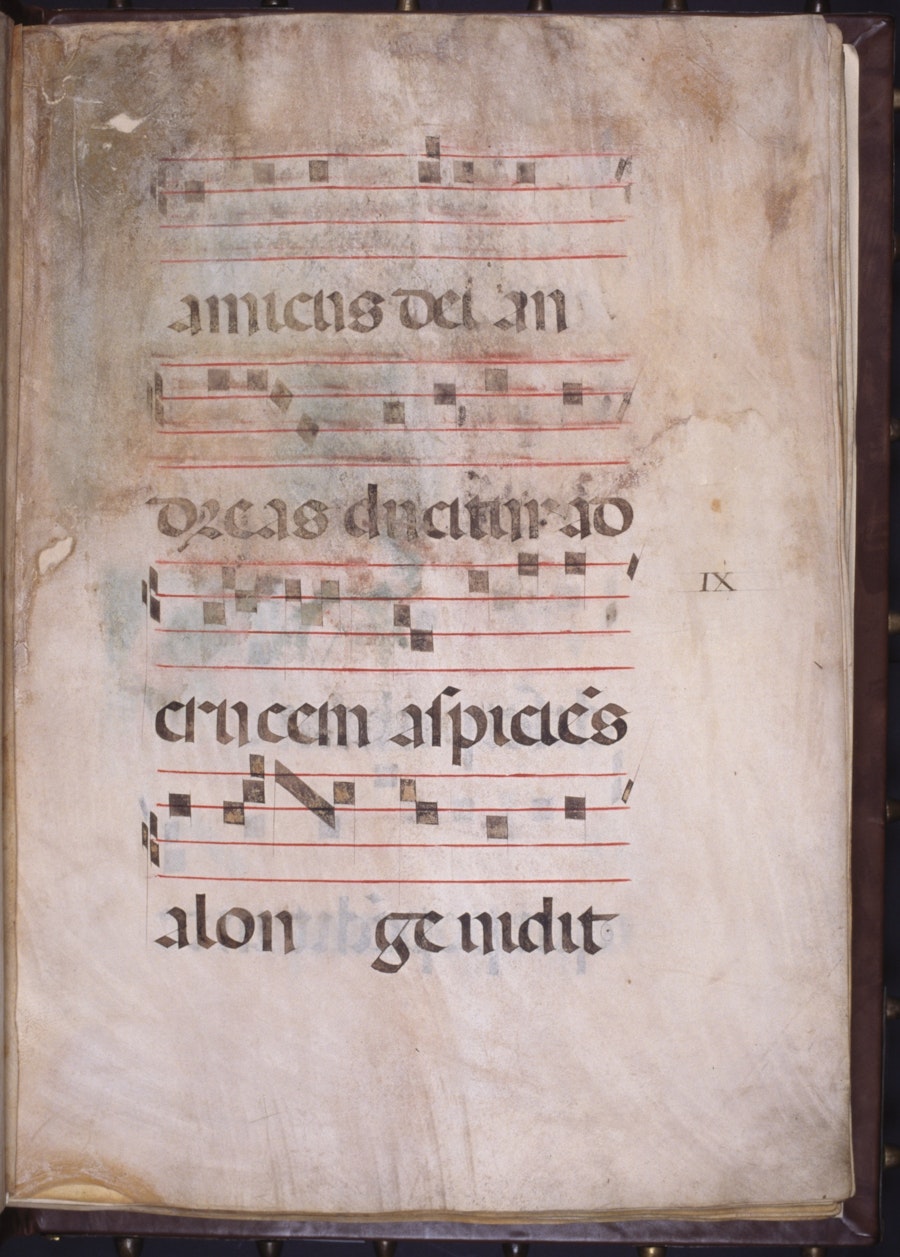 amicus dei an
dreas ducitur ad
IX
crucem aspicies
a lon ge vidit